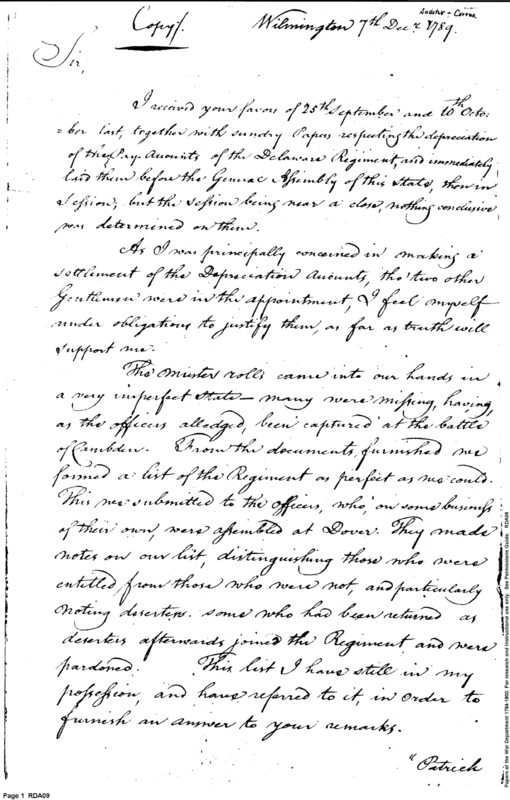 Auditor - Corres.
Copy/.
Wilmington 7th Decr 1789.
Sir,
I received your favors of 25th September and 10th Octo:
=ber last, together with sundry Papers respecting the depreciation
of the Pay Accounts of the Delaware Regiment, and immediately
laid them before the General Assembly of this State, then in
Session; but the Session being near a close, nothing conclusive
was determened on them.
As I was principally concerned in making a
settlement of the Depreciation Accounts, tho' two other
Gentlemen were in the appointment, I feel myself
under obligations to justify them, as far as truth will
support me.
The muster rolls came into our hands in
a very imperfect State — many were missing, having,
as the officers alledged, been captured at the battle
of Cambden. From the documents furnished we
formed a list of the Regiment as perfect as we could.
This we submitted to the officers, who, on some business
of their own, were assembled at Dover. They made
notes on our list, distinguishing those who were
entitled from those who were not, and particularly
noting deserters. some who had been returned as
deserters afterwards joined the Regiment and were
pardoned. This list I have still in my
possession, and have referred to it, in order to
furnish an answer to your remarks.
"Patrick
Page 1 RDA09
Papers of the War Department 1784-1800. For research and instructional use only. See Permissions Guide. RDA09